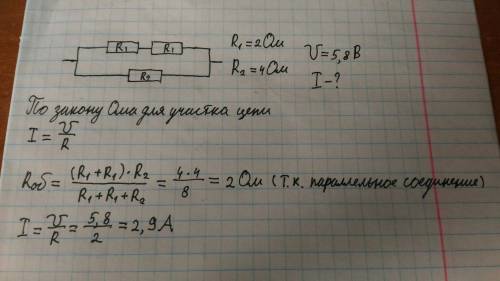 R₁ R₁
R₂
R₁=2Ом
R₂=4Ом
U=5,8В
I-?
По закону Ома для участка цепи
I = U/R
Rоб = (R₁+R₁)·R₂/(R₁+R₁+R₂) = 4·4/8 = 2 Ом (т.к. параллельное соединение)
I = U/R = 5,8/2 = 2,9А